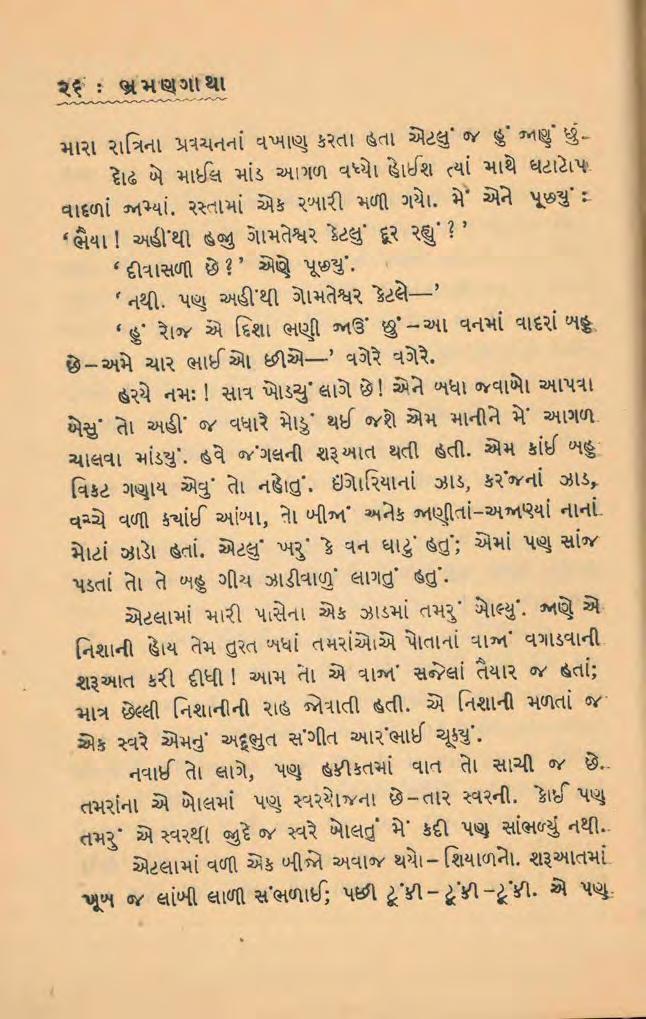 ૨૬ : ભ્રમણગાથા
મારા રાત્રિના પ્રવચનનાં વખાણ કરતા હતા એટલું જ હું જાણું છું–
દોઢ બે માઈલ માંડ આગળ વધ્યો હોઈશ ત્યાં માથે ઘટાટોપ
વાદળાં જામ્યાં. રસ્તામાં એક રબારી મળી ગયો. મેં એને પૂછ્યું :
‘ભૈયા! અહીંથી હજુ ગોમતેશ્વર કેટલું દૂર રહ્યું?’
‘દીવાસળી છે?’ એણે પૂછ્યું.
‘નથી. પણ અહીંથી ગોમતેશ્વર કેટલે—’
‘હું રોજ એ દિશા ભણી જાઉં છું–આ વનમાં વાદરાં બહુ
છે–અમે ચાર ભાઈઓ છીએ—’ વગેરે વગેરે.
હરયે નમઃ! સાવ ખોડચું લાગે છે! એને બધા જવાબો આપવા
બેસું તો અહીં જ વધારે મોડું થઈ જશે એમ માનીને મેં આગળ
ચાલવા માંડ્યું. હવે જંગલની શરૂઆત થતી હતી. એમ કાંઈ બહુ
વિકટ ગણાય એવું તો નહોતું. ઇંગોરિયાનાં ઝાડ, કરંજનાં ઝાડ,
વચ્ચે વળી ક્યાંઈ આંબા, તો બીજાં અનેક જાણીતાં–અજાણ્યાં નાનાં
મોટાં ઝાડો હતાં. એટલું ખરું કે વન ઘાટું હતું; એમાં પણ સાંજ
પડતાં તો તે બહુ ગીચ ઝાડીવાળું લાગતું હતું.
એટલામાં મારી પાસેના એક ઝાડમાં તમરું બોલ્યું. જાણે એ
નિશાની હોય તેમ તુરત બધાં તમરાંઓએ પોતાનાં વાજાં વગાડવાની
શરૂઆત કરી દીધી! આમ તો એ વાજાં સજેલાં તૈયાર જ હતાં;
માત્ર છેલ્લી નિશાનીની રાહ જોવાતી હતી. એ નિશાની મળતાં જ
એક સ્વરે એમનું અદ્ભુત સંગીત આરંભાઈ ચૂક્યું.
નવાઈ તો લાગે, પણ હકીકતમાં વાત તો સાચી જ છે.
તમરાંના એ બોલમાં પણ સ્વરયોજના છે–તાર સ્વરની. કોઈ પણ
તમરું એ સ્વરથી જુદે જ સ્વરે બોલતું મેં કદી પણ સાંભળ્યું નથી.
એટલામાં વળી એક બીજો અવાજ થયો–શિયાળનો. શરૂઆતમાં
ખૂબ જ લાંબી લાળી સંભળાઈ; પછી ટૂંકી–ટૂંકી–ટૂંકી. એ પણ